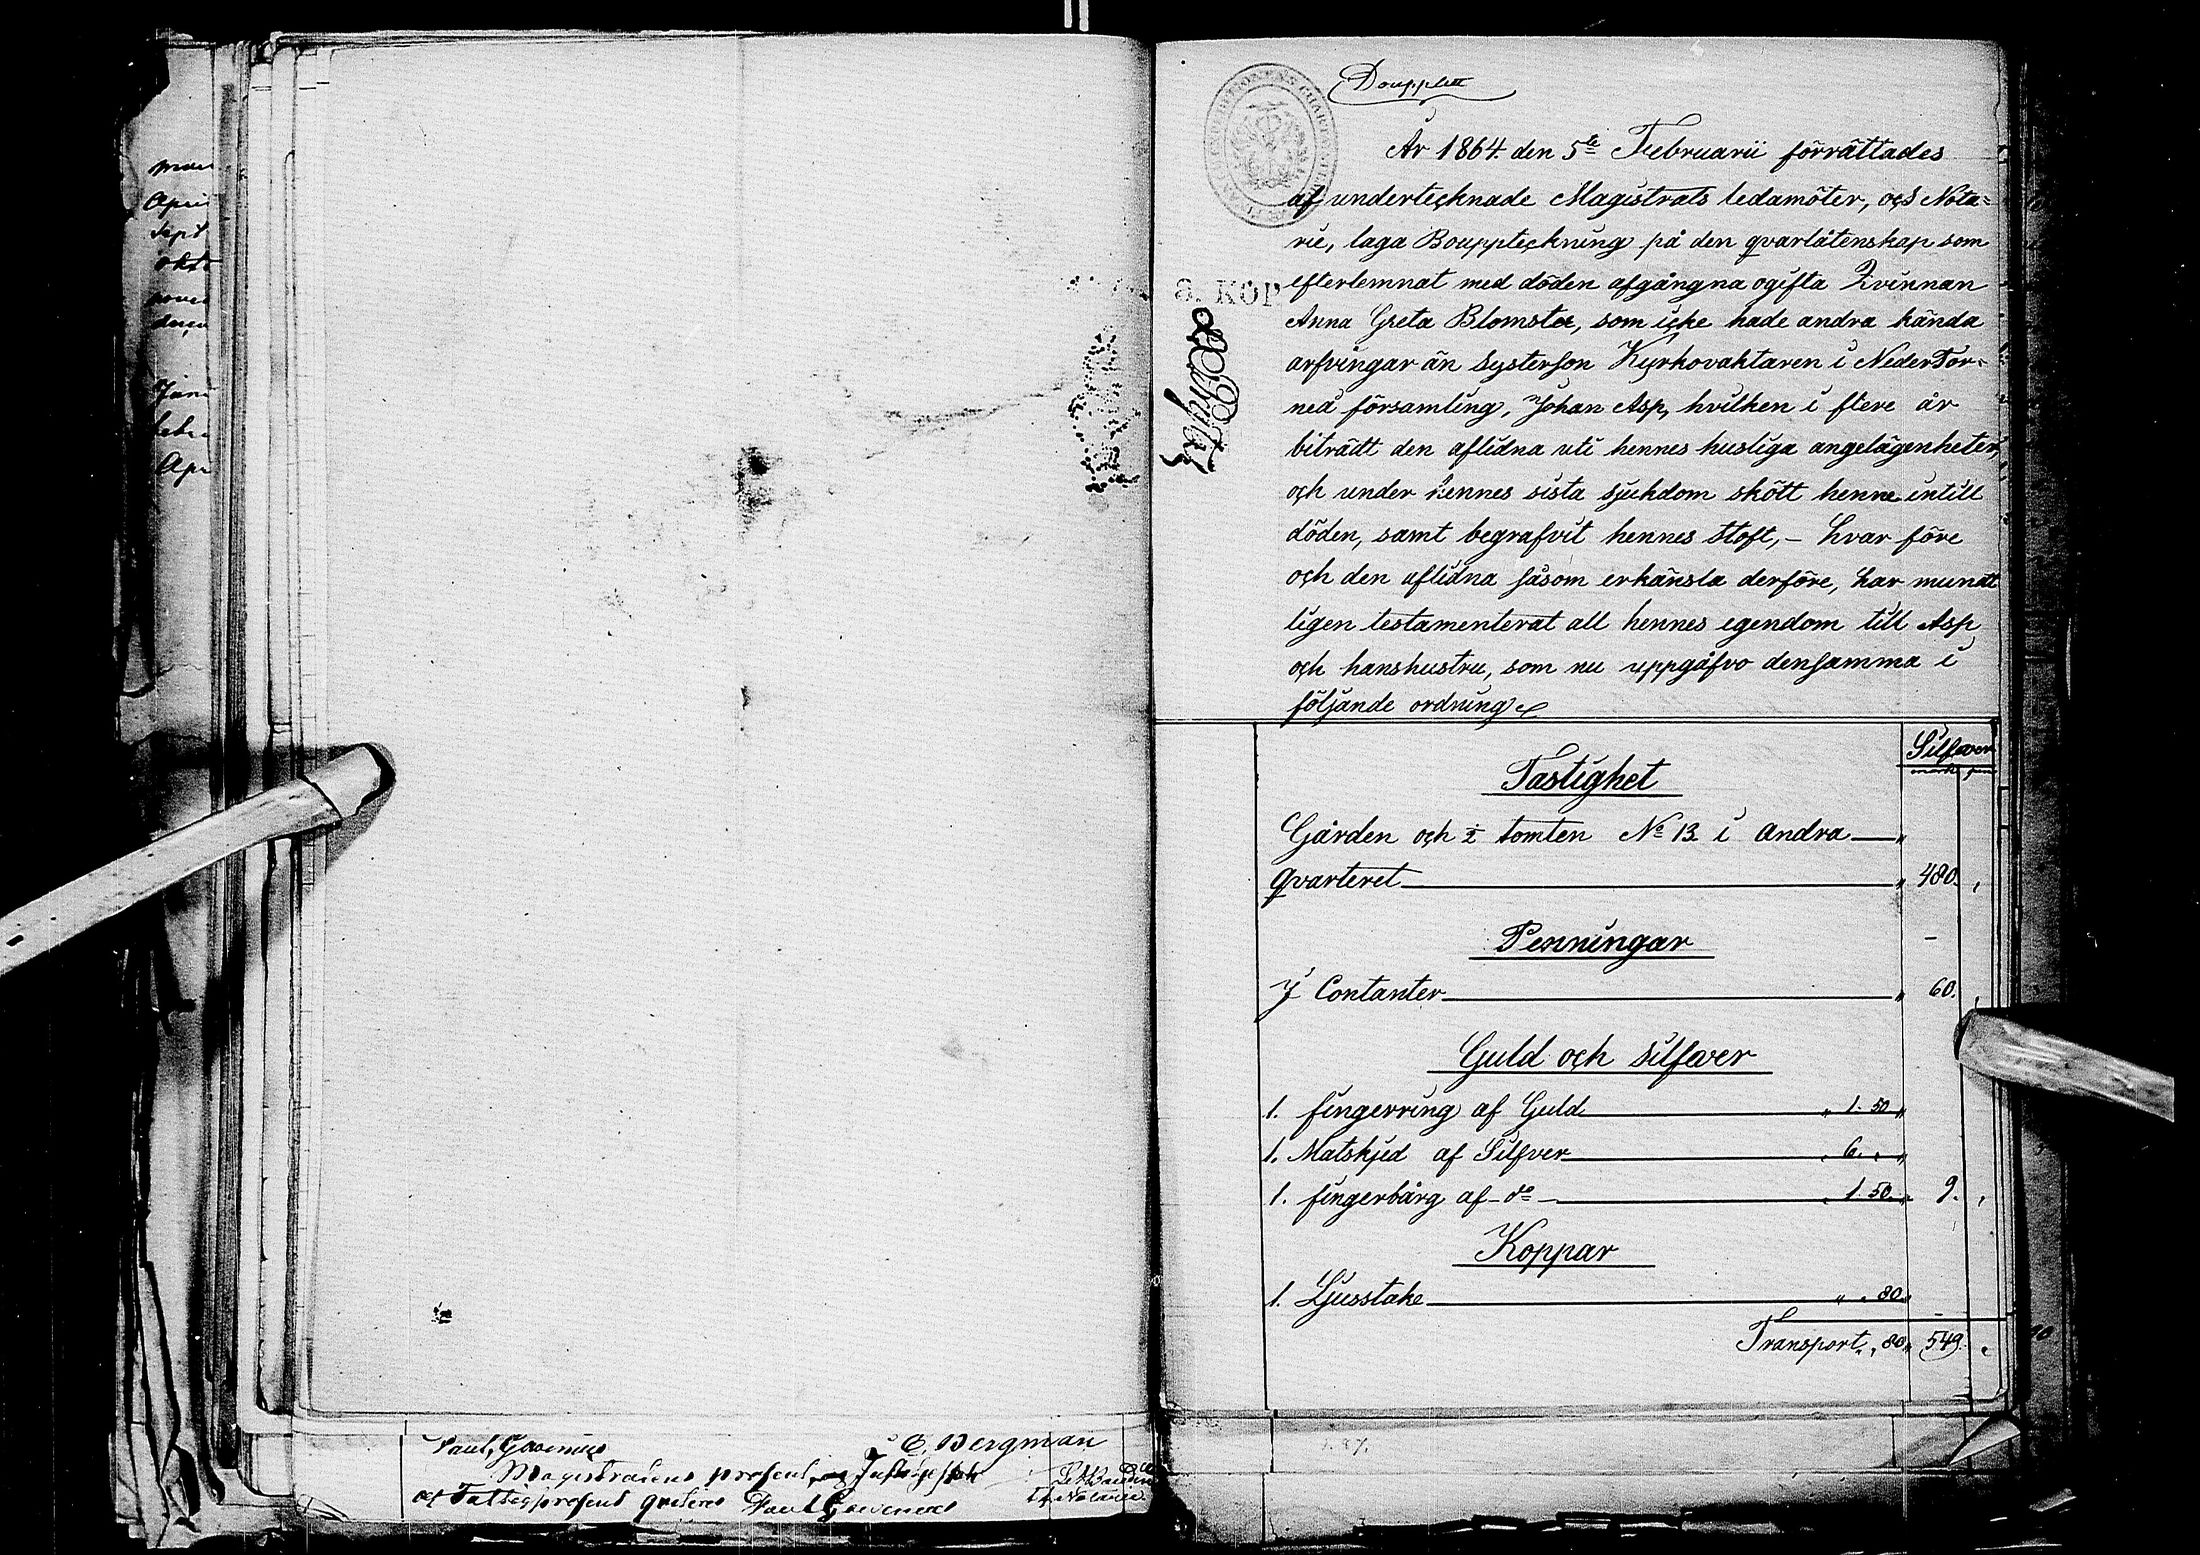 mars
April
Sept
okto
nove
dece
Janu
febr
Apr
E. Bergman
Magistratens procent
Douplett
År 1864. den 5te Februarii förrättades
af undertecknade Magistrats ledamöter, och Nota=
rie, laga Bouppteckning på den qvarlåtenskap som
efterlemnat med döden afgångna ogifta Qvinnan
Anna Greta Blomster, som icke hade andra kända
arfvingar än systerson Kyrkovaktaren i NederTor=
neå församling, Johan Asp, hvilken i flere år
biträdt den aflidna uti hennes husliga angelägenheter,
och under hennes sista sjukdom skött henne intill
döden, samt begrafvit hennes stoft, – hvar före
och den aflidna såsom erkänsla derföre, har munt
ligen testamenterat all hennes egendom till Asp
och hans hustru, som nu uppgåfvo densamma i
följande ordning
8. KOP
Silfver
mark pni
Fastighet
Gården och ½ tomten No 13 i andra
qvarteret " 480. ,
Penningar –
I Contanter " 60. ,
Guld och silfver
1. fingerring af Guld " 1. 50 "
1. Matskjed af Silfver " 6. " "
1. fingerbårg af do " 1. 50. " 9. ,
Koppar
1. Ljusstake " " 80 "
Transport " " 80 " 549. ,